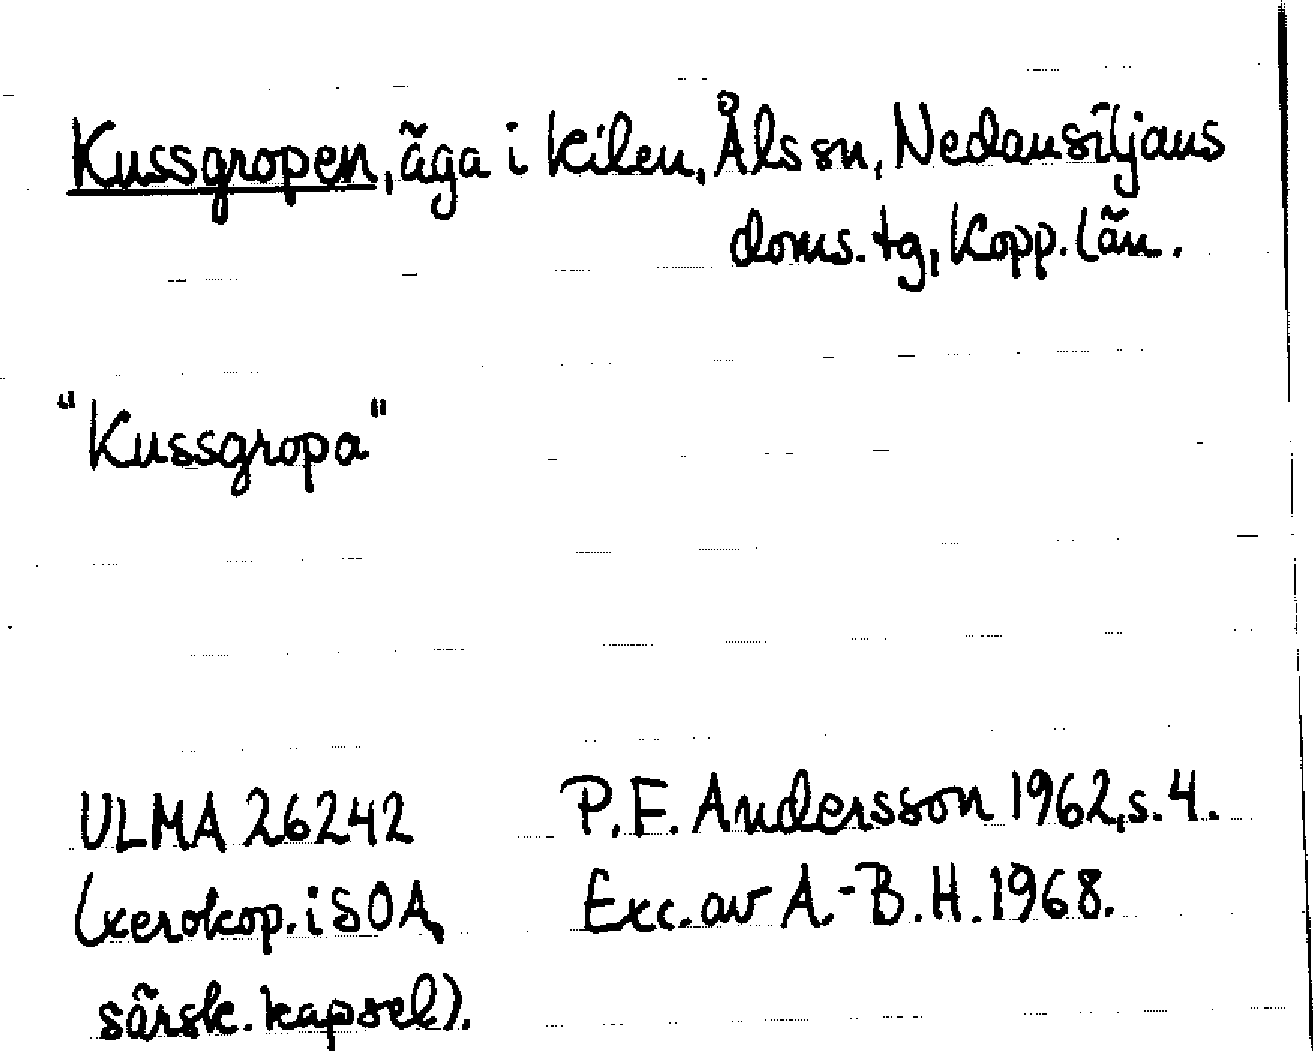 Kussgropen, äga i Kilen, Åls sn, Nedansiljans
doms. tg, Kopp. län.
"Kussgropa"
ULMA 26242 P. E. Andersson 1962, s. 4.
(xerokop. i SOA, Exc. av A.-B. H. 1968.
särsk. kapsel).